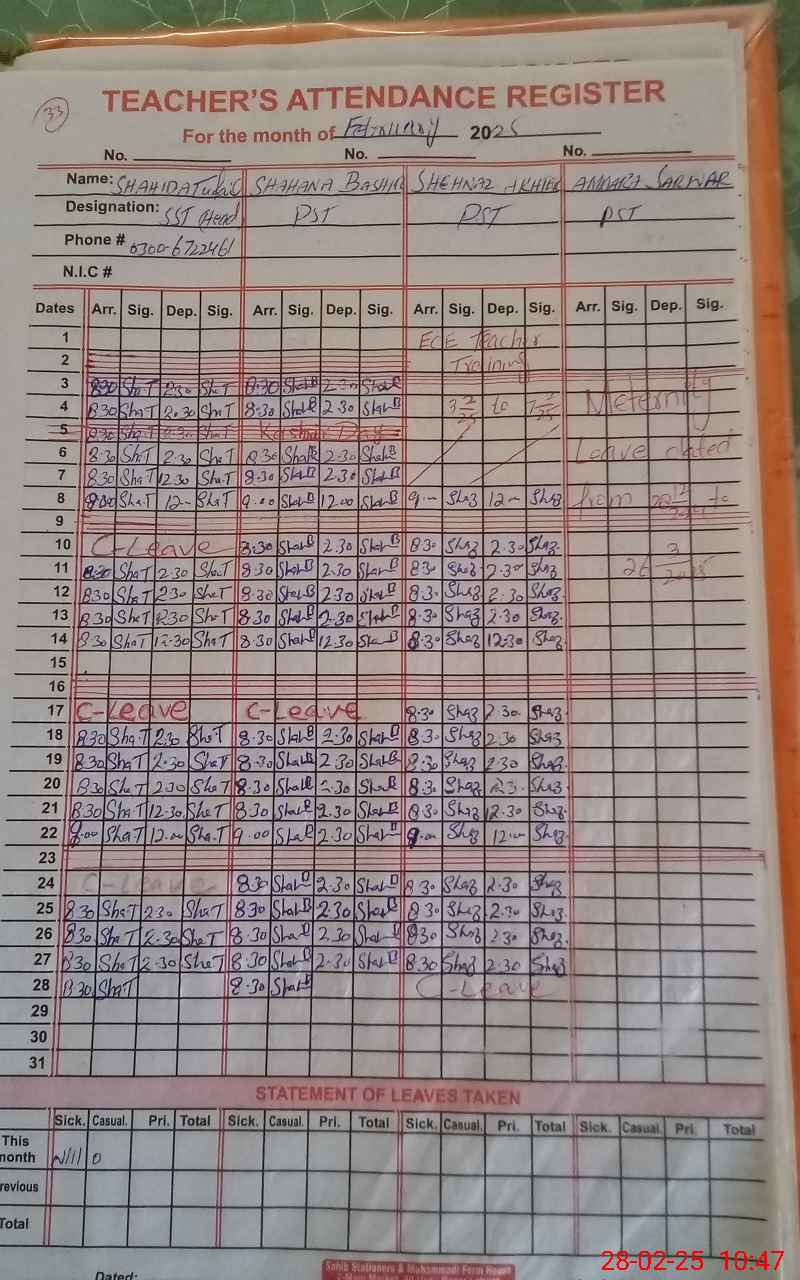 33
TEACHER'S ATTENDANCE REGISTER
For the month of February 2025
No. No. No.
Name: SHAHIDA SHAHANA BASHIR SHEHNAZ AKHTER AMMARA SARWAR
Designation: SST Head PST PST PST
Phone # 0300-6722461
N.I.C #
Dates Arr. Sig. Dep. Sig. Arr. Sig. Dep. Sig. Arr. Sig. Dep. Sig. Arr. Sig. Dep. Sig.
1 ECE Teacher
2 Training
3 8:30 ShaT 2:30 ShaT 8:30 ShahB 2:30 ShahB
4 8:30 ShaT 2.30 ShaT 8.30 ShahB 2.30 ShahB 3 2/25 to 7 2/25 Meternity
5 8:30 ShaT 2.30 ShaT Kashmir Day
6 8.30 ShaT 2.30 ShaT 8.30 ShahB 2.30 ShahB Leave dated
7 8.30 ShaT 12.30 ShaT 8.30 ShahB 2.30 ShahB
8 9.00 ShaT 12- ShaT 9.00 ShahB 12.00 ShahB 9.- Shaz 12- Shaz from to
9
10 C-Leave 8:30 ShahB 2.30 ShahB 8.30 Shaz 2.30 Shaz 3
11 8:30 ShaT 2.30 ShaT 8.30 ShahB 2.30 ShahB 8.30 Shaz 2.30 Shaz 26 2025
12 8.30 ShaT 2.30 ShaT 8.30 ShahB 2.30 ShahB 8.30 Shaz 2.30 Shaz
13 8.30 ShaT 2.30 ShaT 8.30 ShahB 2.30 ShahB 8.30 Shaz 2.30 Shaz
14 8.30 ShaT 12.30 ShaT 8.30 ShahB 12.30 ShahB 8.30 Shaz 12.30 Shaz
15
16
17 C-Leave C-Leave 8.30 Shaz 2.30 Shaz
18 8.30 ShaT 2.30 ShaT 8.30 ShahB 2.30 ShahB 8.30 Shaz 2.30 Shaz
19 8.30 ShaT 2.30 ShaT 8.30 ShahB 2.30 ShahB 8.30 Shaz 2.30 Shaz
20 8.30 ShaT 2.30 ShaT 8.30 ShahB 2.30 ShahB 8.30 Shaz 2.30 Shaz
21 8.30 ShaT 12.30 ShaT 8.30 ShahB 2.30 ShahB 8.30 Shaz 12.30 Shaz
22 9.00 ShaT 12.00 ShaT 9.00 ShahB 2.30 ShahB 9.00 Shaz 12.00 Shaz
23
24 C-Leave 8.30 ShahB 2.30 ShahB 8.30 Shaz 2.30 Shaz
25 8.30 ShaT 2.30 ShaT 8.30 ShahB 2.30 ShahB 8.30 Shaz 2.30 Shaz
26 8.30 ShaT 2.30 ShaT 8.30 ShahB 2.30 ShahB 8.30 Shaz 2.30 Shaz
27 8.30 ShaT 2.30 ShaT 8.30 ShahB 2.30 ShahB 8.30 Shaz 2.30 Shaz
28 8.30 ShaT 8.30 ShahB C-Leave
29
30
31
STATEMENT OF LEAVES TAKEN
Sick. Casual. Pri. Total Sick. Casual. Pri. Total Sick. Casual. Pri. Total Sick. Casual. Pri. Total
This
month Nill 0
revious
Total
Dated:
Sahib Stationers & Muhammadi Form House
28-02-25 10:47